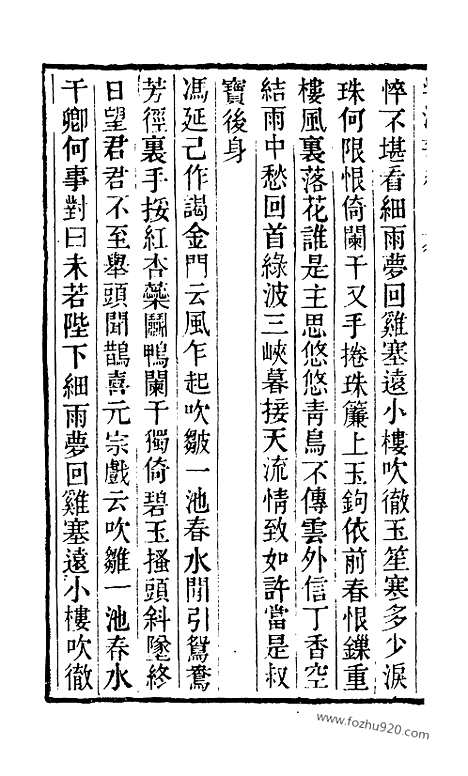 悴不堪看細雨夢回雞塞遠小樓吹徹玉笙寒多少淚
珠何限恨倚闌干又手捲珠簾上玉鉤依前春恨鏁重
樓風裏落花誰是主思悠悠青鳥不傳雲外信丁香空
結雨中愁回首綠波三峽暮接天流情致如許當是叔
寶後身
馮延己作謁金門云風乍起吹皺一池春水閒引鴛鴦
芳徑裏手挼紅杏蘂鬭鴨闌干獨倚碧玉搔頭斜墜終
日望君君不至舉頭聞鵲喜元宗戲云吹皺一池春水
干卿何事對曰未若陛下細雨夢回雞塞遠小樓吹徹
www.fozhu920.com